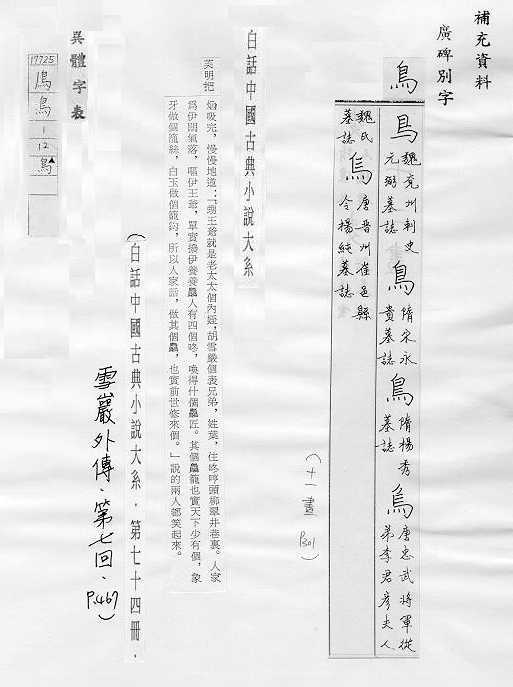 補充資料
廣碑別字
鳥
魏兗州刺史
元弼墓誌
隋宋永
貴墓誌
隋楊秀
墓誌
唐忠武將軍從
弟李君彥夫人
魏氏
墓誌
唐晉州崔邑縣
令楊純墓誌
(十一畫
P301)
白話中國古典小說大系
芙明把
煙吸完，慢慢地道：「甥王爺就是老太太個內姪，胡雪巖個表兄弟，姓葉，住咚哼頭柳翠井巷裏。人家
爲伊閙氣落，嘔伊王爺，單賓換伊養養鳥人有四個咚，喚得什個鳥匠。其個鳥籠也實天下少有個，象
牙做個籠絲，白玉做個籠鈎，所以人家話，做其個鳥，也實前世修來個。」說的兩人都笑起來。
(白話中國古典小說大系．第七十四冊．
雪巖外傳．第七回．P.467)
異體字表
17725
鳥
1
12